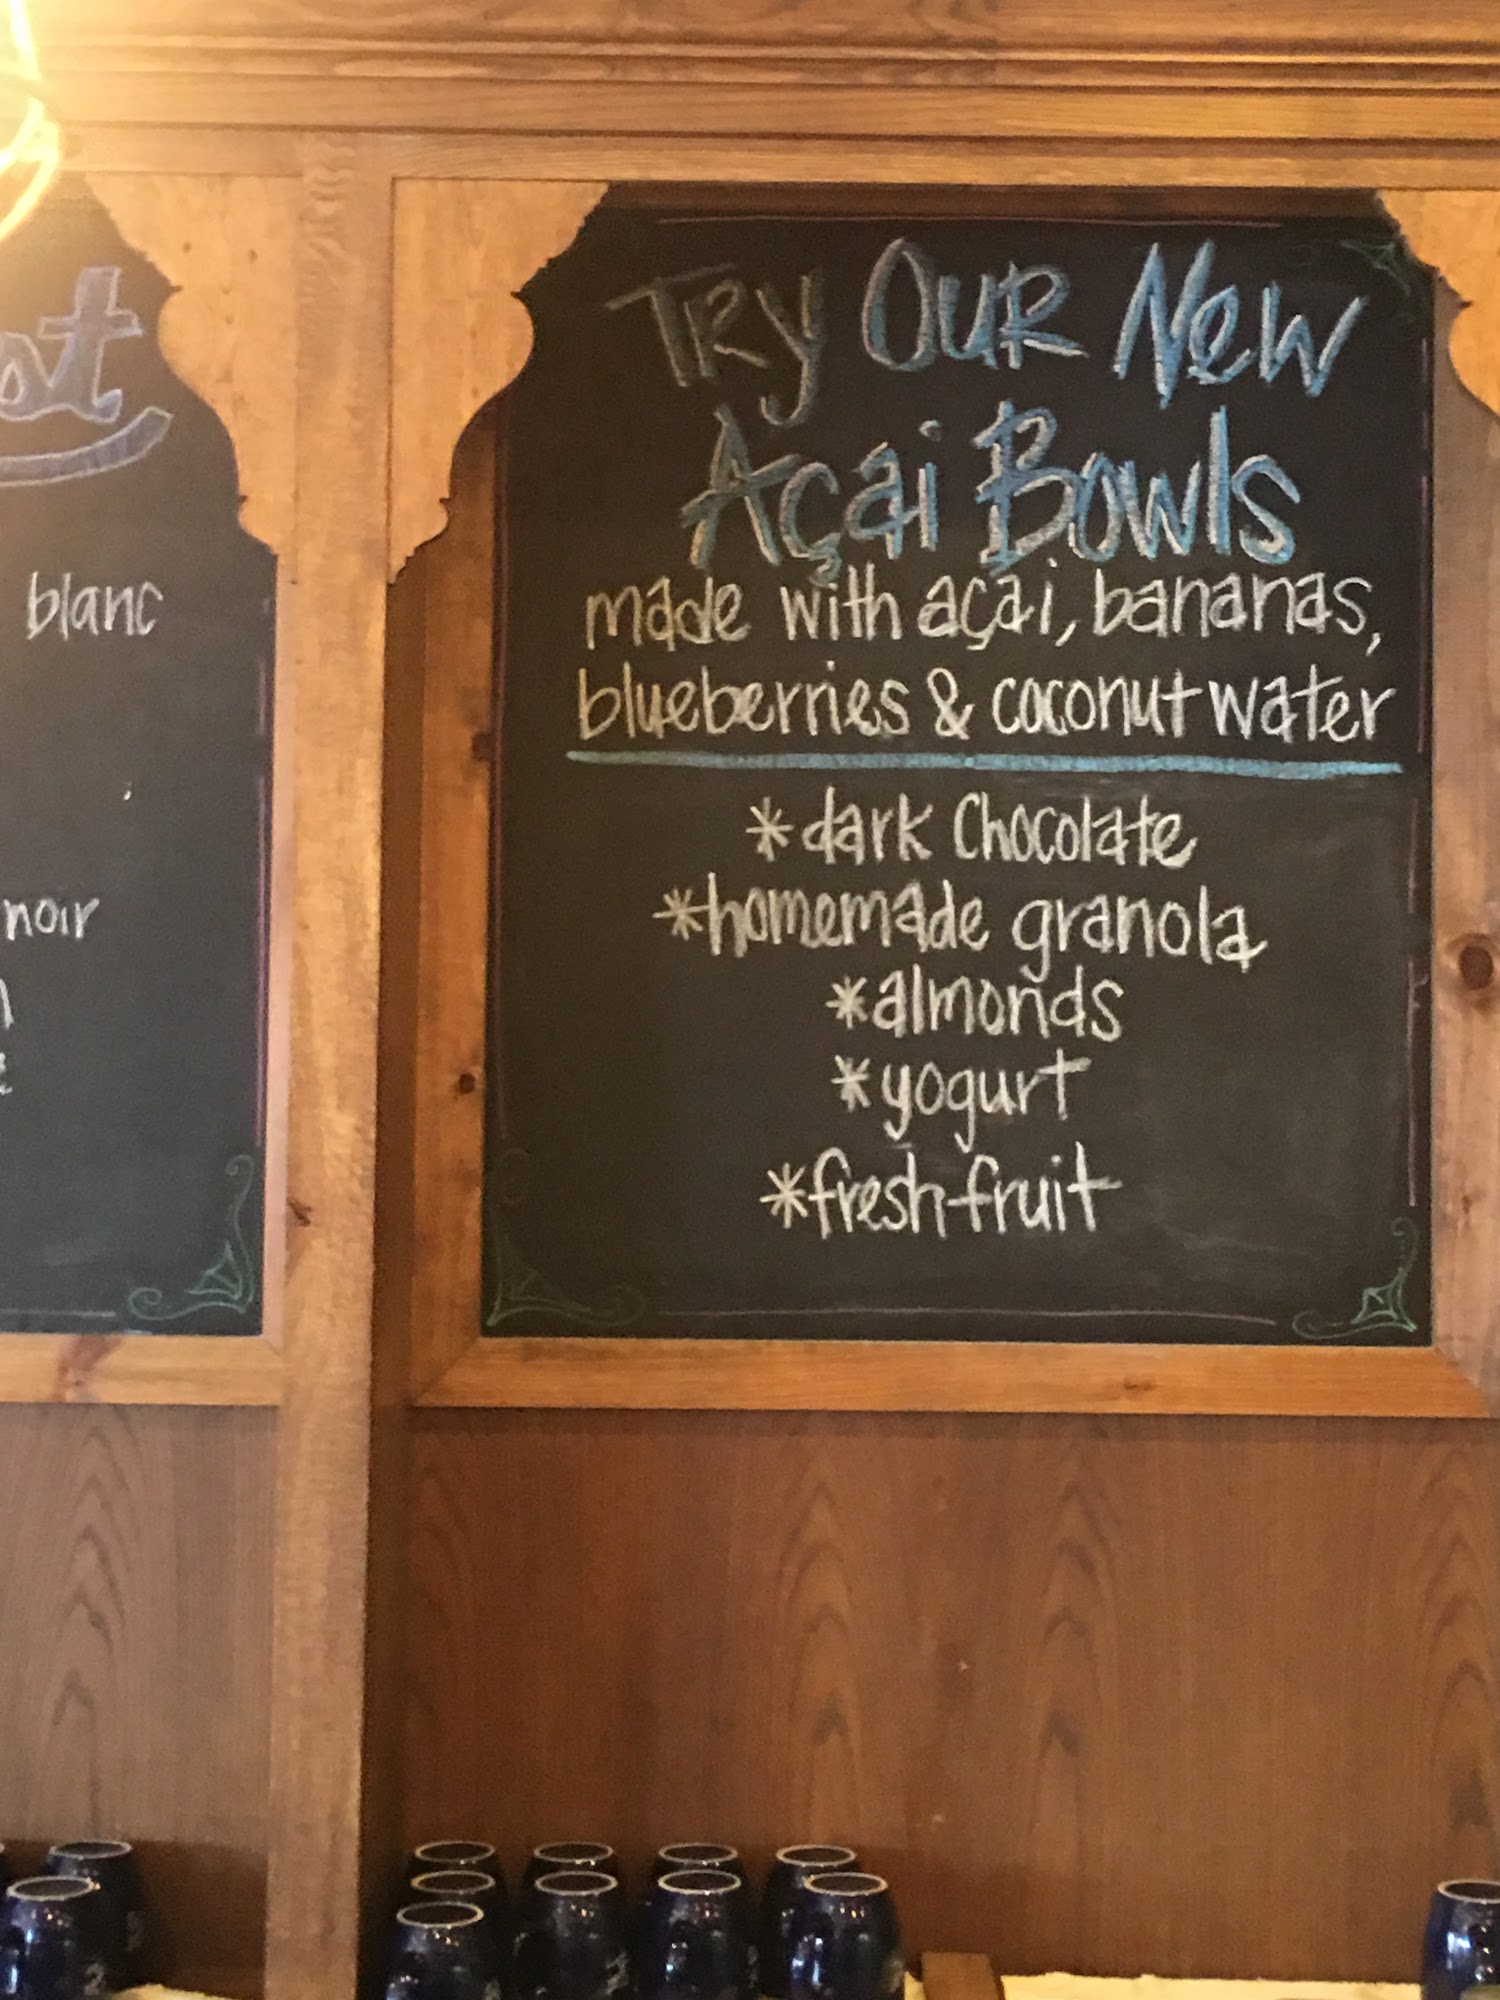 blanc
noir
Try Our New
Açai Bowls
made with açai, bananas,
blueberries & coconut water
*dark Chocolate
*homemade granola
*almonds
*yogurt
*fresh fruit